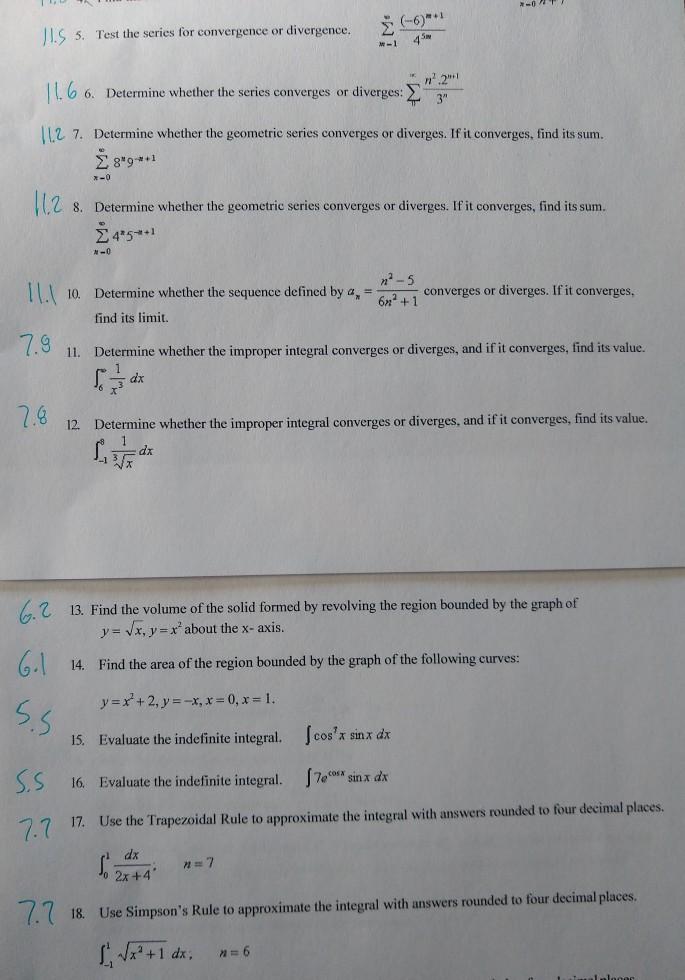 11.5 5. Test the series for convergence or divergence. ∑_{m=1}^{∞} (-6)^{m+1} / 4^{5m}
11.6 6. Determine whether the series converges or diverges: ∑_{n}^{∞} n².2^{n+1} / 3^n
11.2 7. Determine whether the geometric series converges or diverges. If it converges, find its sum.
∑_{n=0}^{∞} 8^n 9^{-n+1}
11.2 8. Determine whether the geometric series converges or diverges. If it converges, find its sum.
∑_{n=0}^{∞} 4^n 5^{-n+1}
11.1 10. Determine whether the sequence defined by a_n = (n² - 5) / (6n² + 1) converges or diverges. If it converges,
find its limit.
7.8 11. Determine whether the improper integral converges or diverges, and if it converges, find its value.
∫_6^∞ 1/x³ dx
7.8 12. Determine whether the improper integral converges or diverges, and if it converges, find its value.
∫_{-1}^8 1/∛x dx
6.2 13. Find the volume of the solid formed by revolving the region bounded by the graph of
y = √x, y = x² about the x- axis.
6.1 14. Find the area of the region bounded by the graph of the following curves:
y = x² + 2, y = -x, x = 0, x = 1.
5.5 15. Evaluate the indefinite integral. ∫cos⁷x sin x dx
5.5 16. Evaluate the indefinite integral. ∫7e^{cos x} sin x dx
7.7 17. Use the Trapezoidal Rule to approximate the integral with answers rounded to four decimal places.
∫_0^1 dx / (2x + 4); n = 7
7.7 18. Use Simpson's Rule to approximate the integral with answers rounded to four decimal places.
∫_{-1}^1 √(x² + 1) dx; n = 6